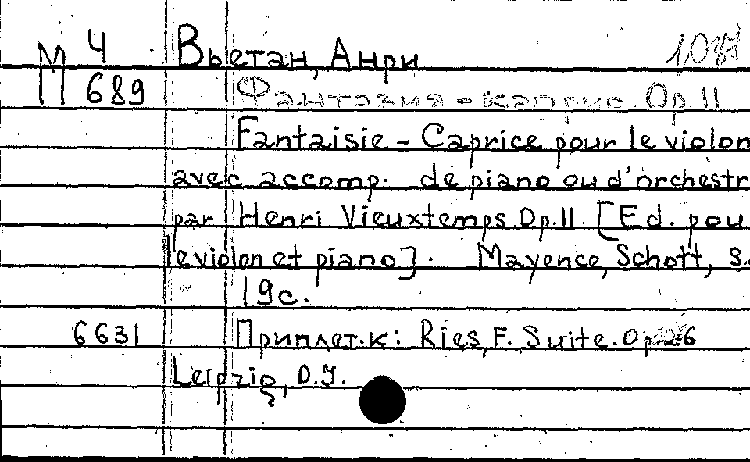 М 4 Вьетан, Анри
689 Фантазия - каприс. Op.11
Fantaisie - Caprice pour le violon
avec accomp. de piano ou d'orchestr
par Henri Vieuxtemps Op.11 [Ed. pou
le violon et piano]. Mayence, Schott, s.
19c.
6631 Приплет.к: Ries, F. Suite. Op. 26
Leipzig,